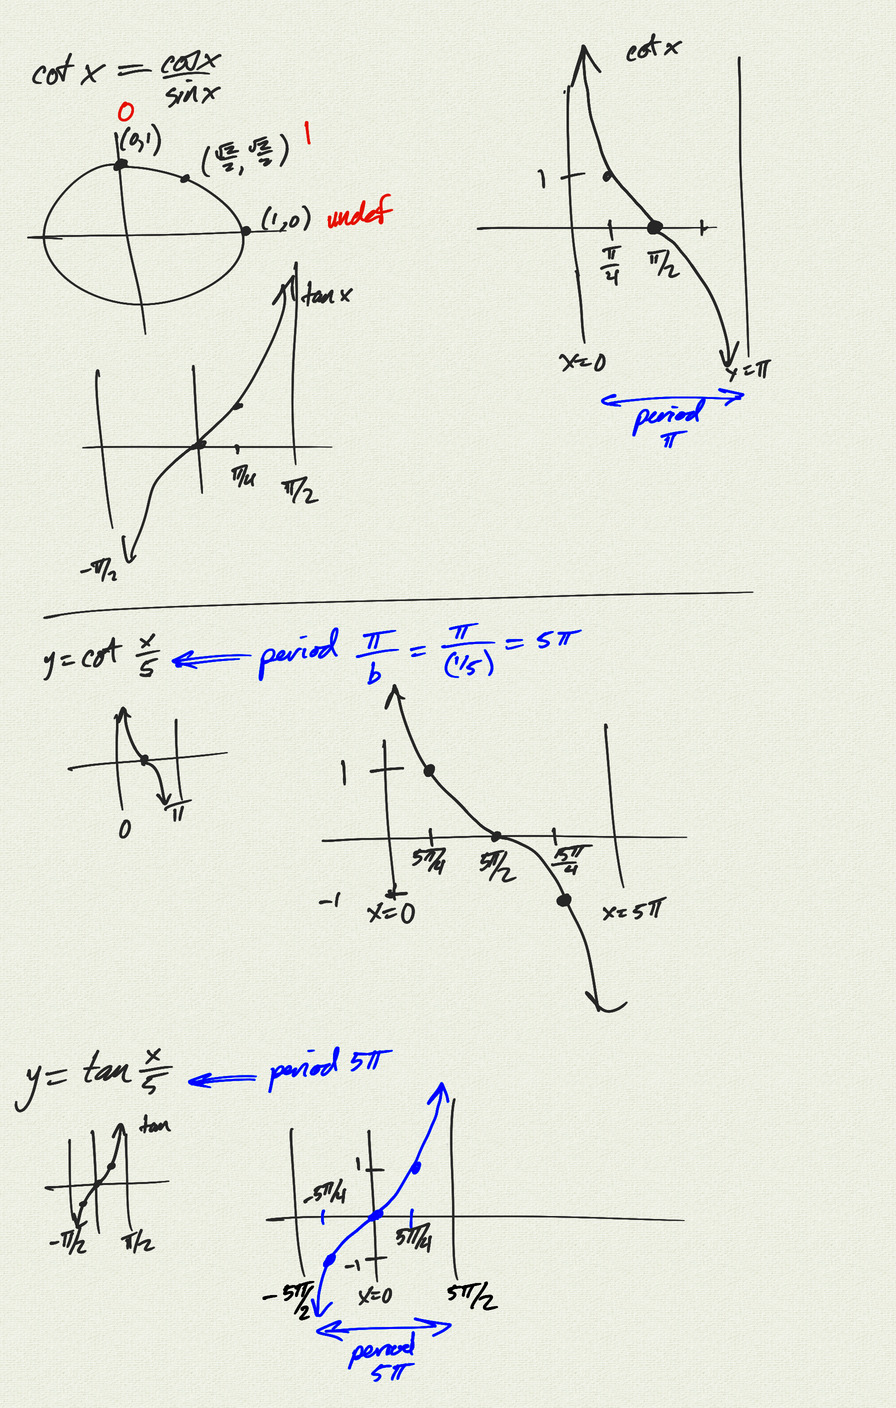 cot x = cosx/sinx
0
(0,1)
(√2/2, √2/2) 1
(1,0) undef
tan x
π/4
π/2
-π/2
cot x
1
π/4 π/2
x=0 x=π
period
π
y=cot x/5 ⟸ period π/b = π/(1/5) = 5π
0 π
1
5π/4 5π/2 15π/4
-1
x=0 x=5π
y= tan x/5 ⟸ period 5π
tan
-π/2 π/2
1
-5π/4
5π/4
-1
-5π/2 x=0 5π/2
period
5π